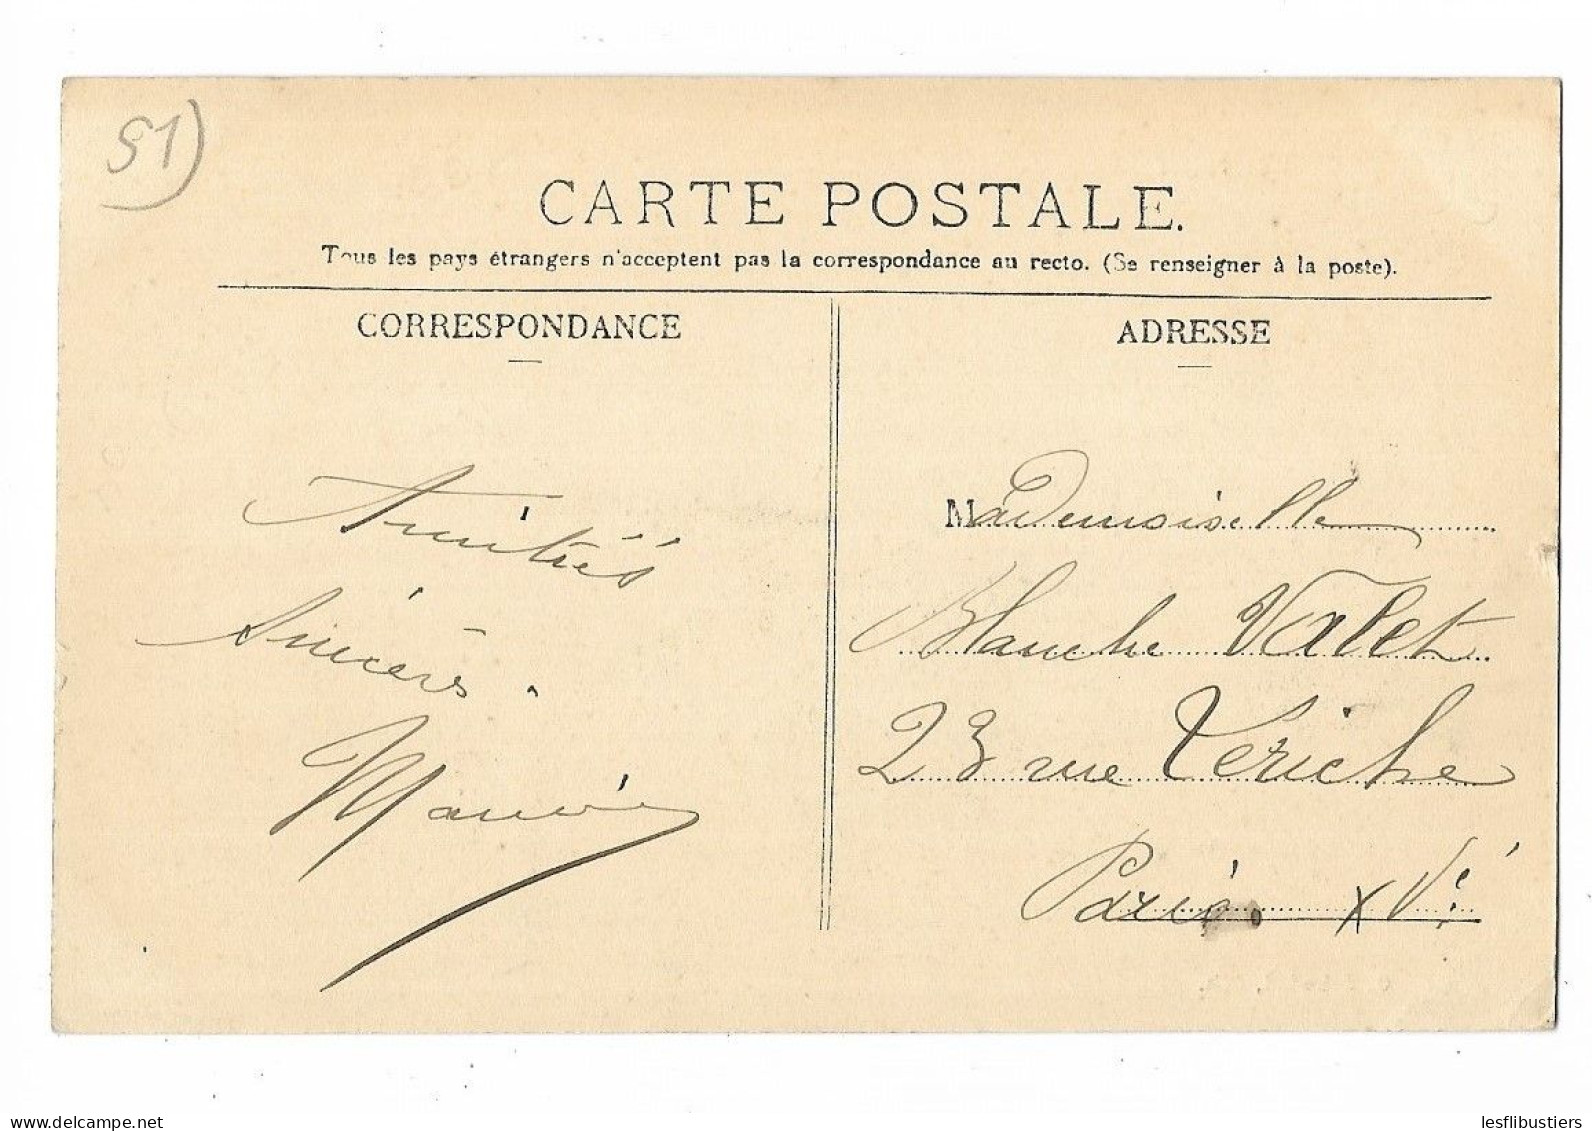 51)
CARTE POSTALE.
Tous les pays étrangers n'acceptent pas la correspondance au recto. (Se renseigner à la poste).
CORRESPONDANCE
Amitiés
Sincères.
ADRESSE
Mademoiselle
Blanche Valet
23 rue Tériche
Paris. XVè
www.delcampe.net
lesflibustiers